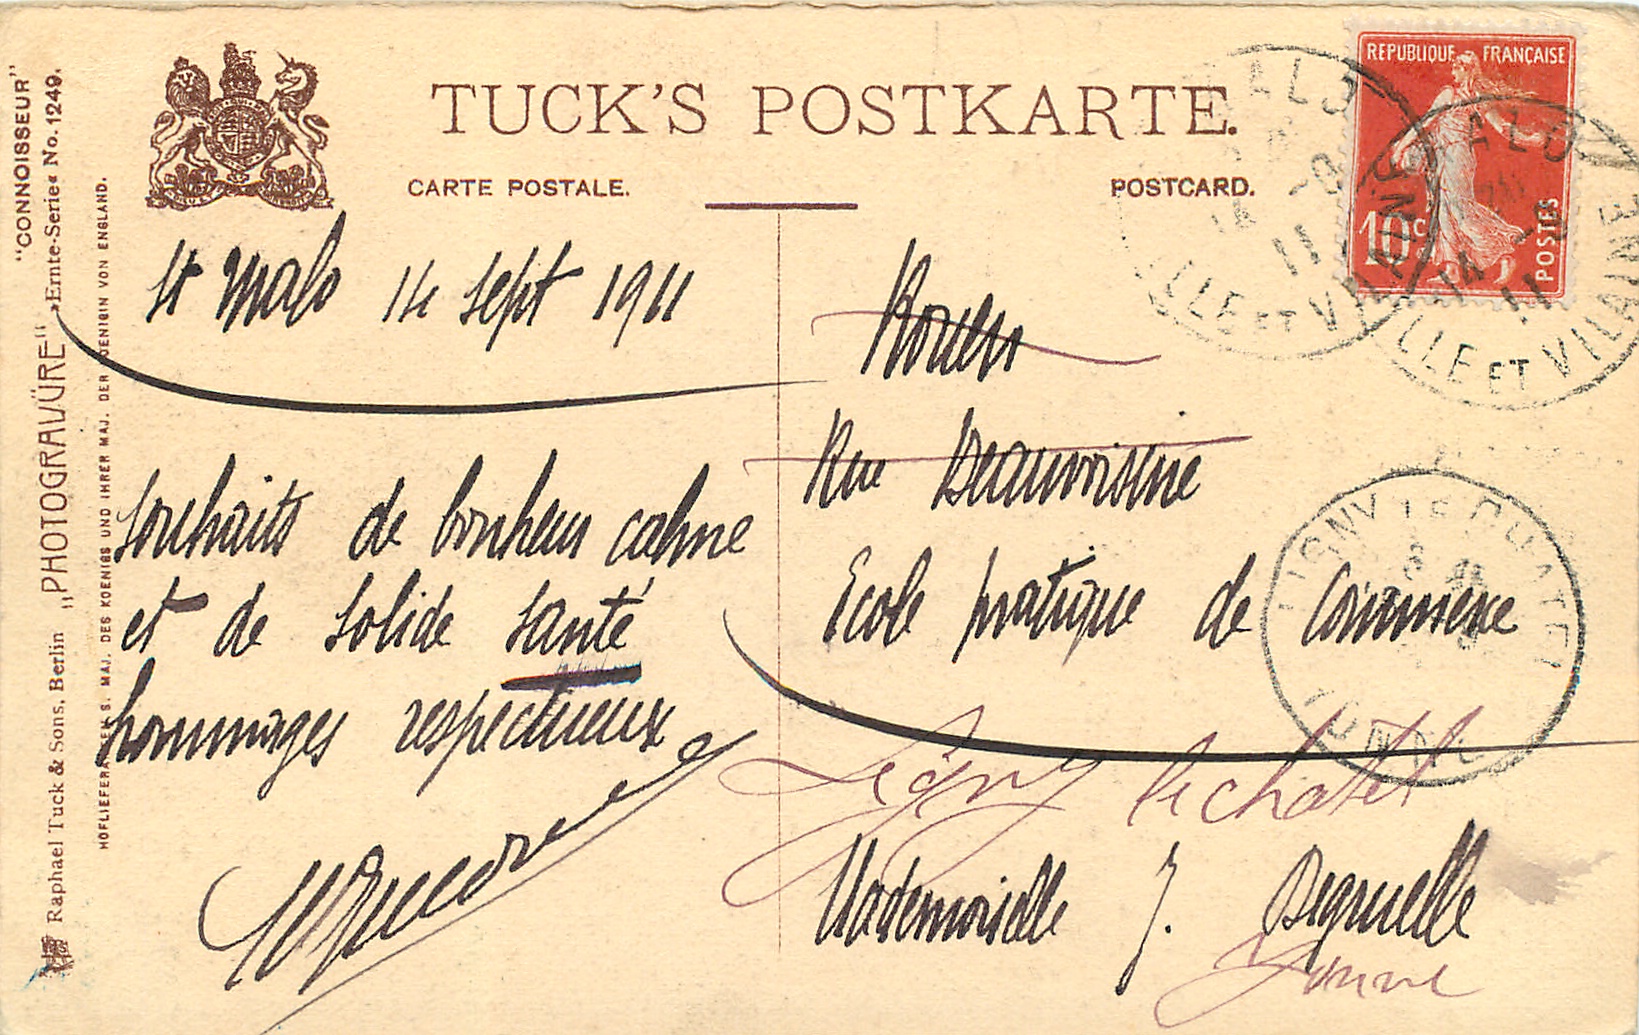 TUCK'S POSTKARTE.
CARTE POSTALE.
POSTCARD.
"CONNOISSEUR"
Raphael Tuck & Sons, Berlin „PHOTOGRAVÜRE" »Ernte-Serie« No. 1249.
HOFLIEFERANTEN S. MAJ. DES KOENIGS UND IHRER MAJ. DER KOENIGIN VON ENGLAND.
REPUBLIQUE FRANÇAISE
10c
POSTES
ILLE ET VILAINE
ILLE ET VILAINE
St Malo 14 Sept 1911
souhaits de bonheur calme
et de solide santé
hommages respectueux
Rouen
Rue Beauvoisine
Ecole pratique de Commerce
Ligny le chatel
Mademoiselle J. Degruelle
Yonne
LIGNY LE CHATEL
YONNE